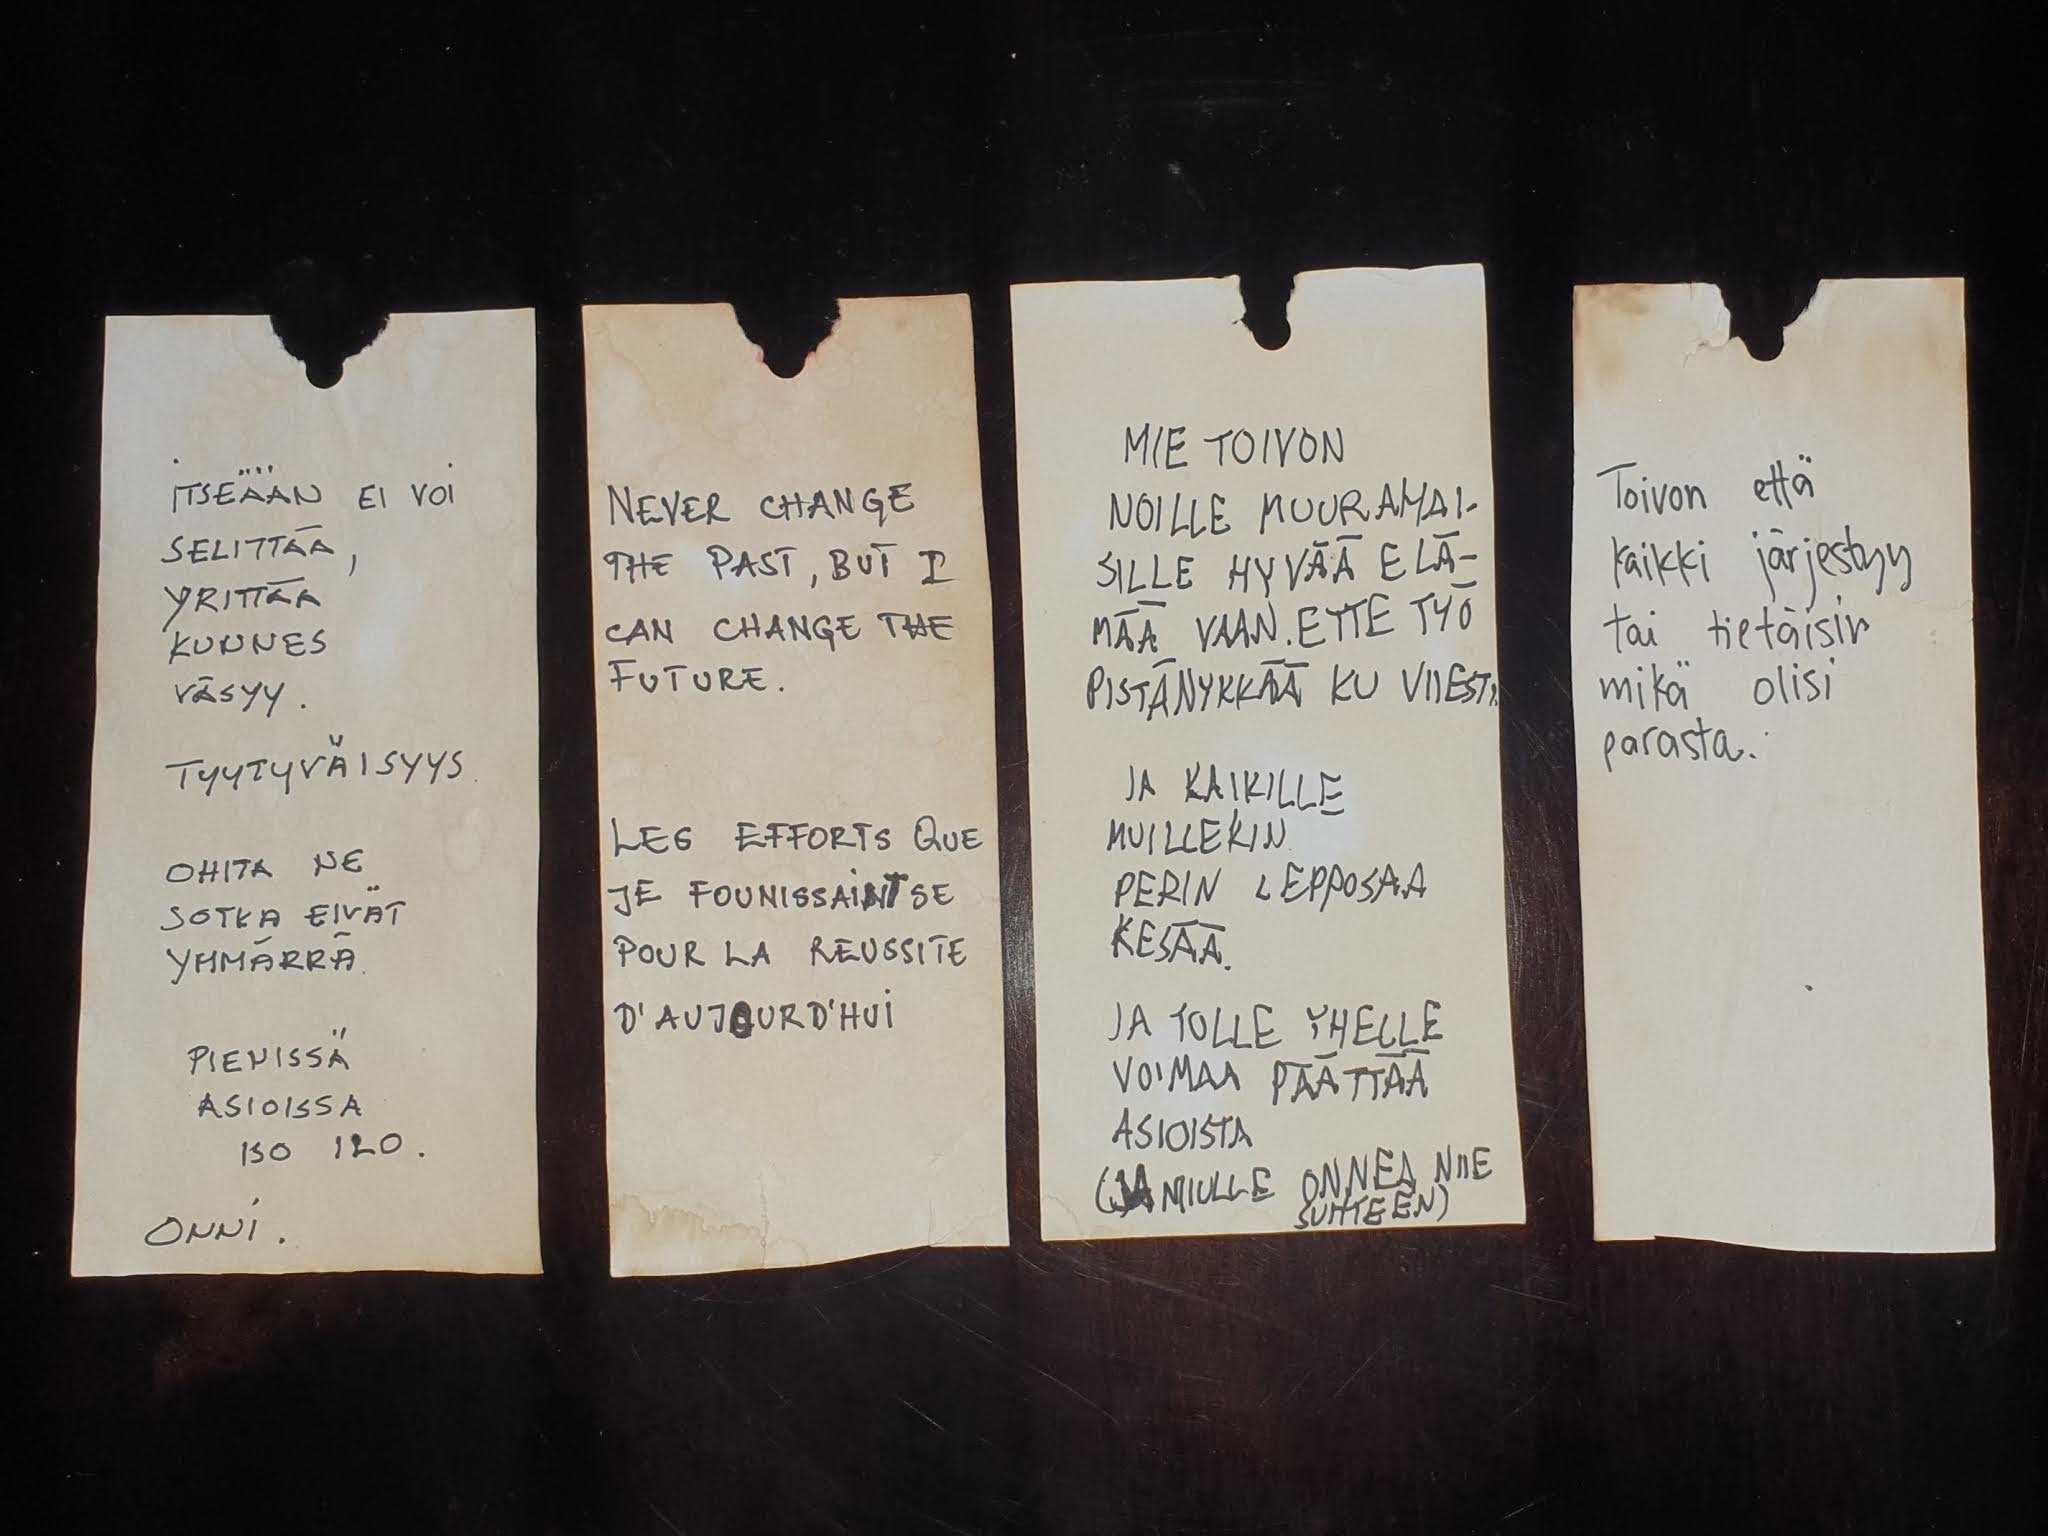 iTSEÄÄN EI VOI
SELITTÄÄ,
YRITTÄÄ
KUNNES
VÄSYY.
TYYTYVÄISYYS
OHITA NE
JOTKA EIVÄT
YMMÄRRÄ
PIENISSÄ
ASIOISSA
ISO ILO.
ONNi.
NEVER CHANGE
THE PAST, BUT I
CAN CHANGE THE
FUTURE.
LES EFFORTS QUE
JE FOUNISSAINT SE
POUR LA REUSSITE
D'AUJOURD'HUI
MIE TOIVON
NOILLE MUURAHAI-
SILLE HYVÄÄ ELÄ-
MÄÄ VAAN. ETTE TYÖ
PISTÄNYKKÄÄ KU VIIESTI.
JA KAIKILLE
MUILLEKIN
PERIN LEPPOSAA
KESÄÄ.
JA TOLLE YHELLE
VOIMAA PÄÄTTÄÄ
ASIOISTA
(JA MIULLE ONNEA NIIE
SUHTEEN)
Toivon että
kaikki järjestyy
tai tietäisin
mikä olisi
parasta.